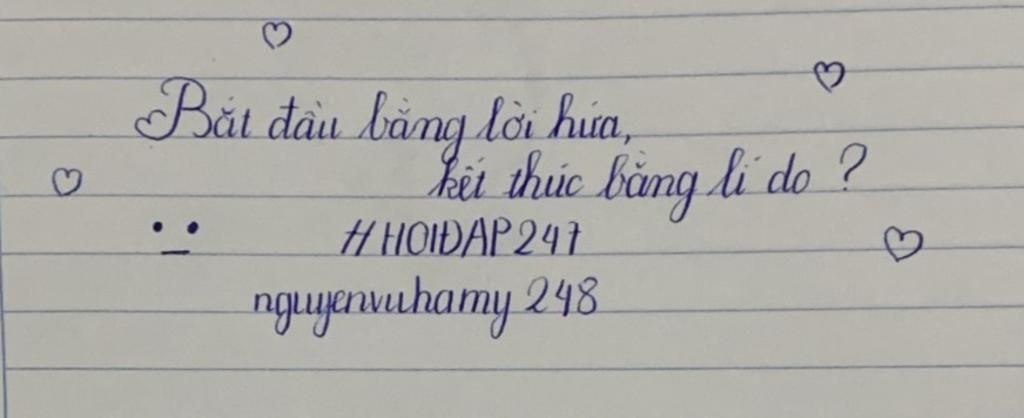 Bắt đầu bằng lời hứa,
kết thúc bằng lí do ?
#HOIĐAP247
nguyenvuhamy248